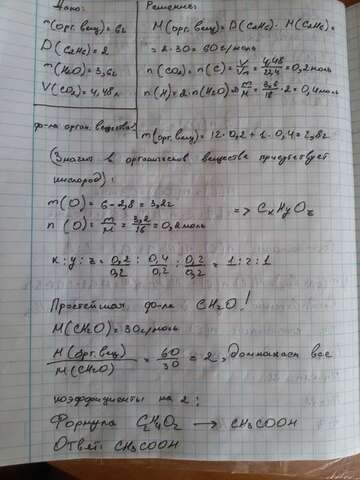 Дано:
m(орг. вещ) = 6г
D(C2H6) = 2
m(H2O) = 3,6г
V(CO2) = 4,48л
ф-ла орган. вещества?
Решение:
M(орг. вещ) = D(C2H6) · M(C2H6) =
= 2 · 30 = 60 г/моль
n(CO2) = n(C) = V/Vm = 4,48/22,4 = 0,2 моль
n(H) = 2·n(H2O) = m/M = 3,6/18 · 2 = 0,4 моль
m(орг. вещ) = 12 · 0,2 + 1 · 0,4 = 2,8г
(Значит в органическом веществе присутствует
кислород):
m(O) = 6 - 2,8 = 3,2г
n(O) = m/M = 3,2/16 = 0,2 моль => CxHyOz
x : y : z = 0,2/0,2 : 0,4/0,2 : 0,2/0,2 = 1 : 2 : 1
Простейшая ф-ла CH2O!
M(CH2O) = 30 г/моль
M(орг. вещ)/M(CH2O) = 60/30 = 2, домножаем все
коэффициенты на 2:
Формула C2H4O2 → CH3COOH
Ответ: CH3COOH